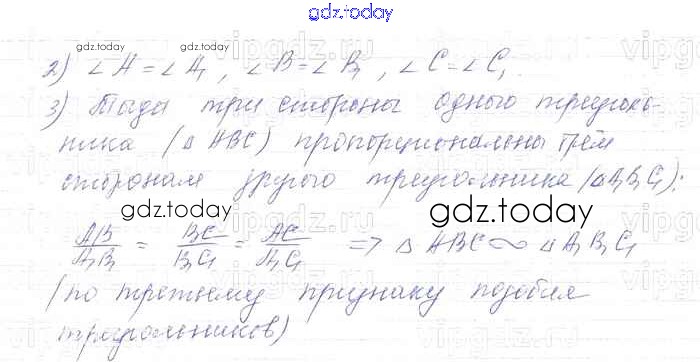 gdz.today
gdz.today
2) ∠A = ∠A₁, ∠B = ∠B₁, ∠C = ∠C₁
3) Тогда три стороны одного треуголь-
ника (△ABC) пропорциональны трём
сторонам другого треугольника (△A₁B₁C₁):
gdz.today gdz.today
AB/A₁B₁ = BC/B₁C₁ = AC/A₁C₁ => △ABC ∾ △A₁B₁C₁
gdz.today
(по третьему признаку подобия
треугольников)